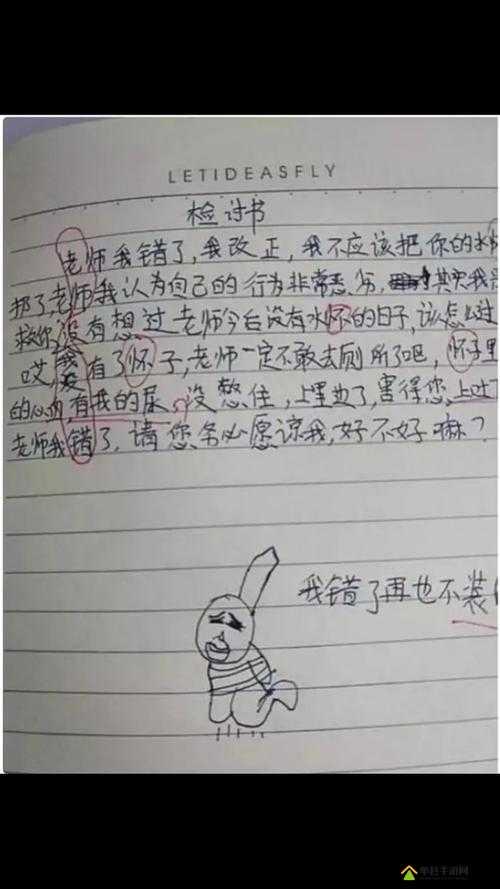 LETIDEASFLY
检讨书
老师我错了,我改正,我不应该把你的水
扔了,老师我认为自己的行为非常恶劣,其实我
救你,没有想过老师今后没有水怀的日子,该怎么过
哎,我有了怀子,老师一定不敢去厕所了吧,怀子里
的心有我的尿,没憋住,上里边了,害得您上吐
老师我错了,请您务必愿谅我,好不好嘛?
我错了再也不装
单机手游网